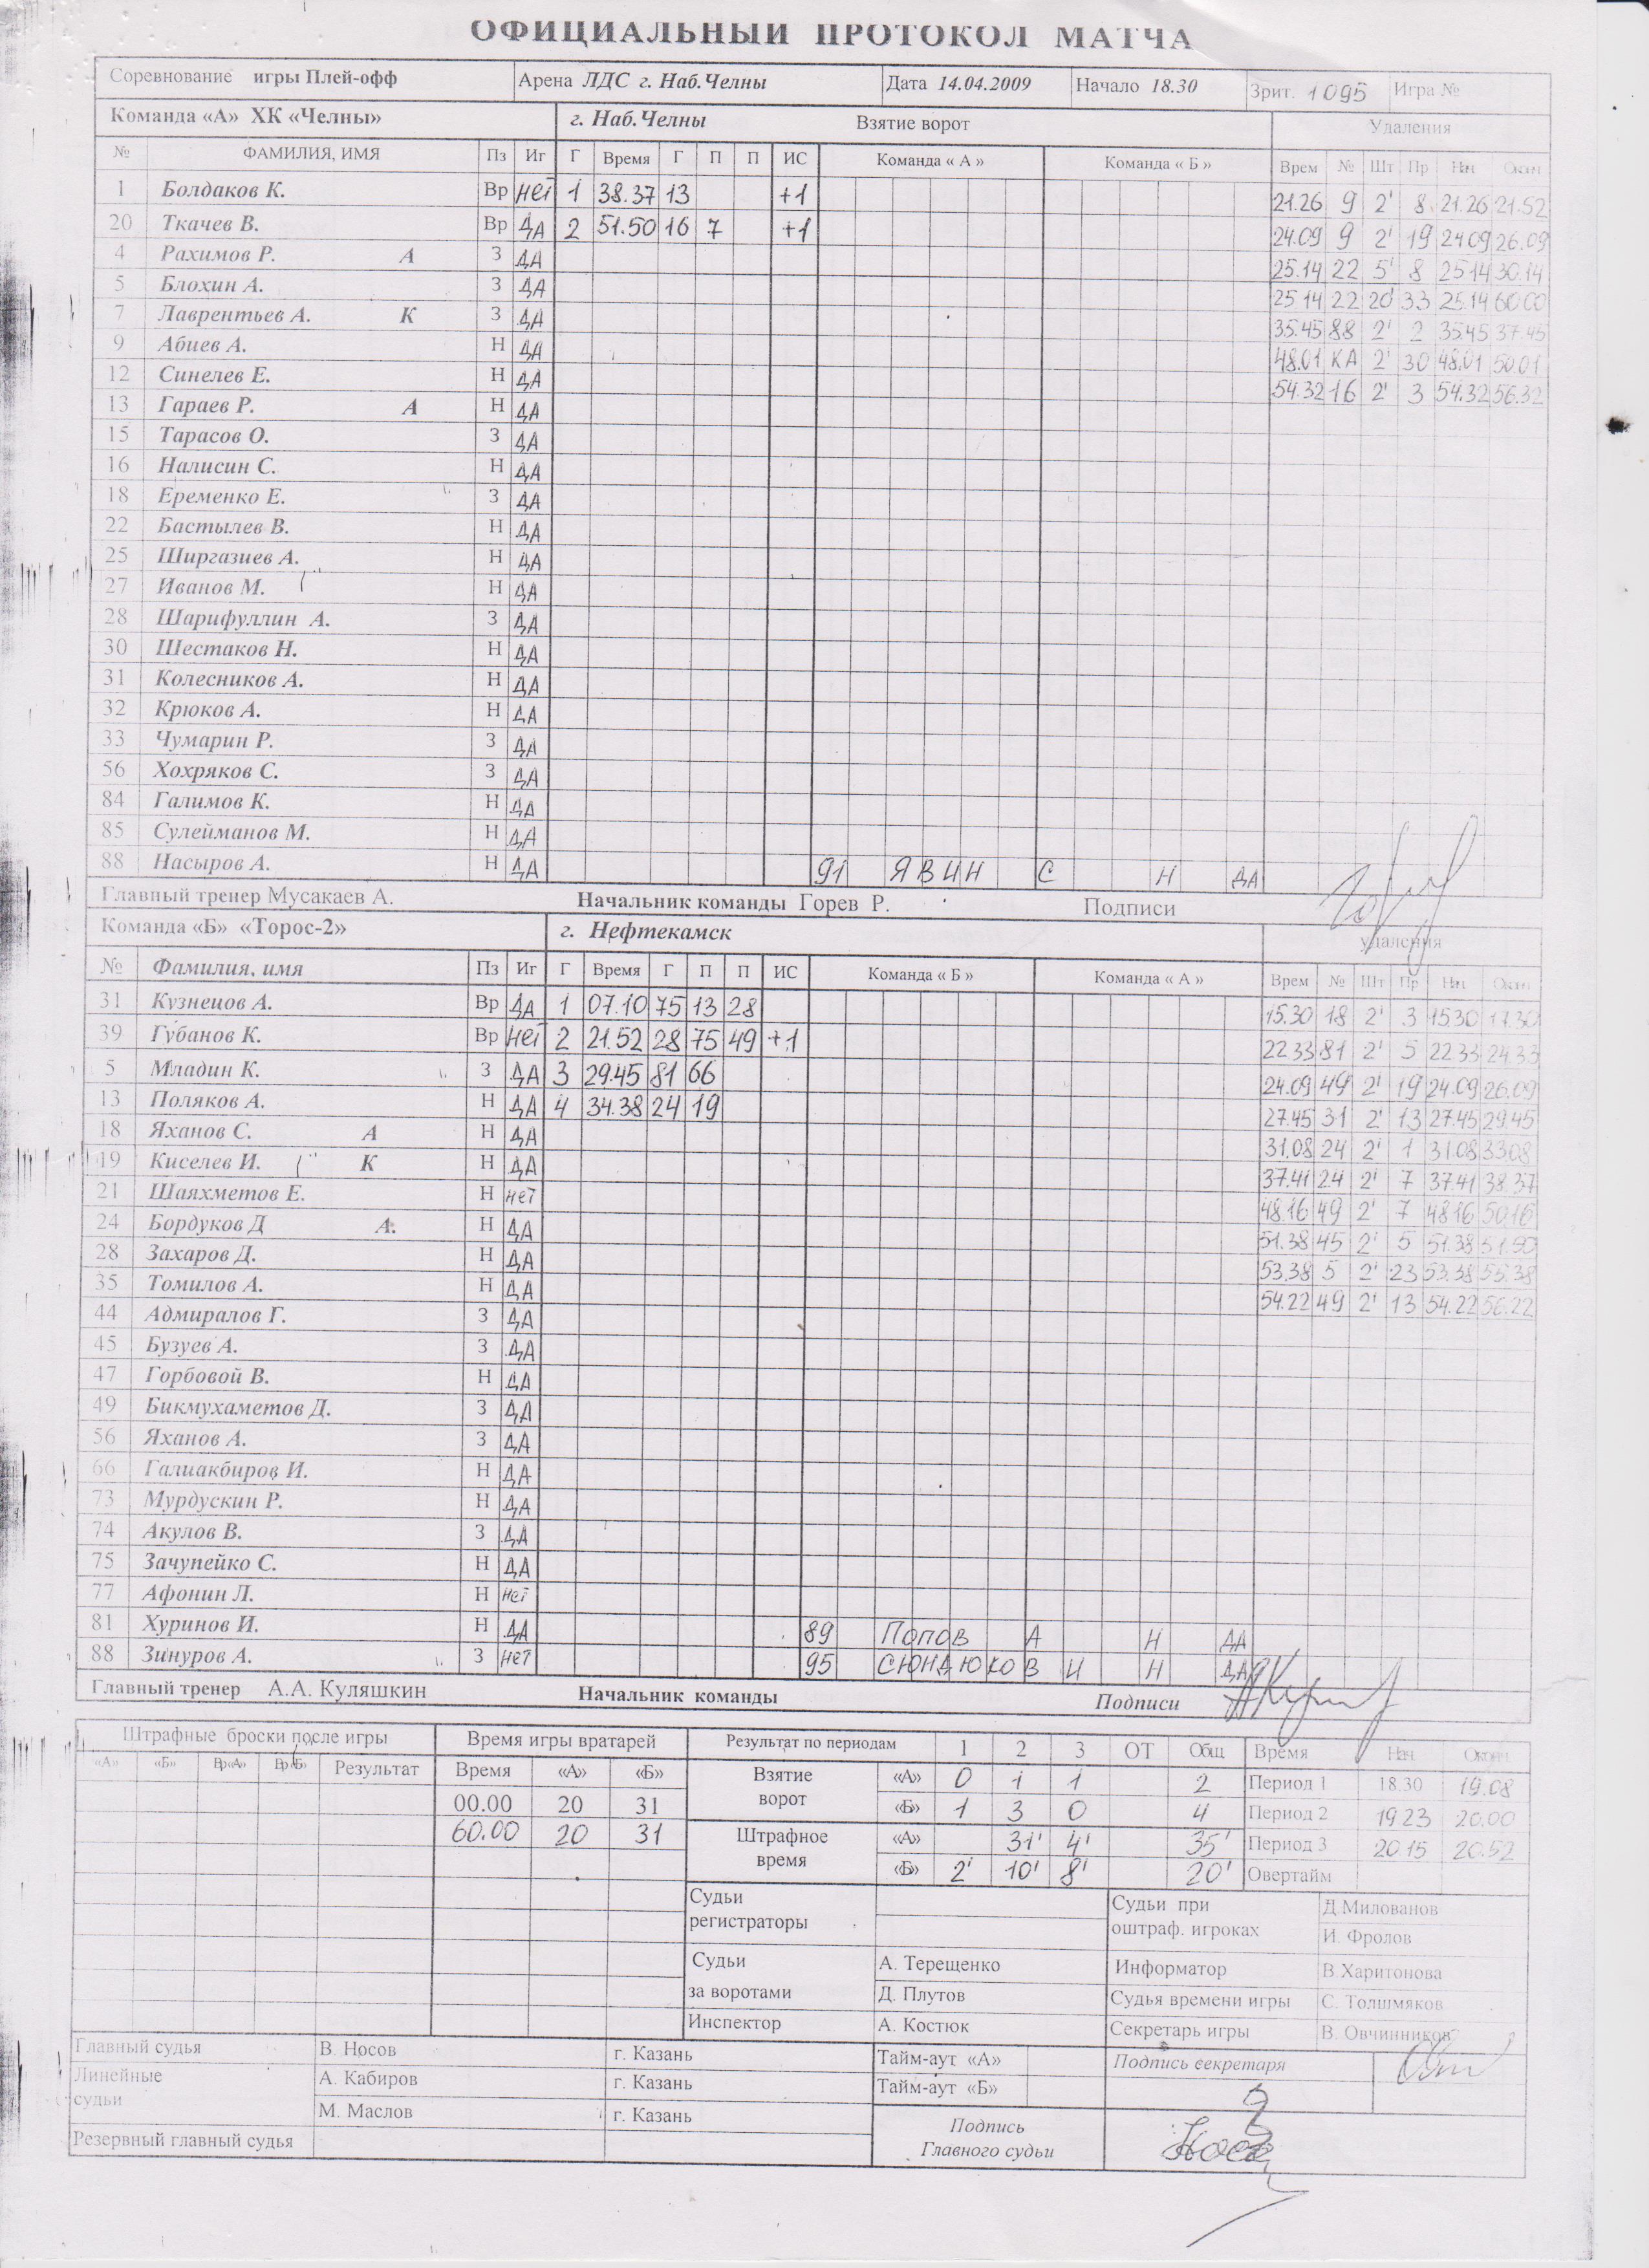 ОФИЦИАЛЬНЫЙ ПРОТОКОЛ МАТЧА
Соревнование игры Плей-офф Арена ЛДС г. Наб.Челны Дата 14.04.2009 Начало 18.30 Зрит. 1095 Игра №
Команда «А» ХК «Челны» г. Наб.Челны Взятие ворот Удаления
№ ФАМИЛИЯ, ИМЯ Пз Иг Г Время Г П П ИС Команда « А » Команда « Б » Врем № Шт Пр Нач Окон
1 Болдаков К. Вр нет 1 38.37 13 +1 21.26 9 2' 8 21.26 21.52
20 Ткачев В. Вр ДА 2 51.50 16 7 +1 24.09 9 2' 19 24.09 26.09
4 Рахимов Р. А З ДА 25.14 22 5' 8 25.14 30.14
5 Блохин А. З ДА 25.14 22 20' 33 25.14 60.00
7 Лаврентьев А. К З ДА 35.45 88 2' 2 35.45 37.45
9 Абиев А. Н ДА 48.01 КА 2' 30 48.01 50.01
12 Синелев Е. Н ДА 54.32 16 2' 3 54.32 56.32
13 Гараев Р. А Н ДА
15 Тарасов О. З ДА
16 Налисин С. Н ДА
18 Еременко Е. З ДА
22 Бастылев В. Н ДА
25 Ширгазиев А. Н ДА
27 Иванов М. Н ДА
28 Шарифуллин А. З ДА
30 Шестаков Н. Н ДА
31 Колесников А. Н ДА
32 Крюков А. Н ДА
33 Чумарин Р. З ДА
56 Хохряков С. З ДА
84 Галимов К. Н ДА
85 Сулейманов М. Н ДА
88 Насыров А. Н ДА 91 ЯВИН С Н ДА
Главный тренер Мусакаев А. Начальник команды Горев Р. Подписи
Команда «Б» «Торос-2» г. Нефтекамск удаления
№ Фамилия, имя Пз Иг Г Время Г П П ИС Команда « Б » Команда « А » Врем № Шт Пр Нач Окон
31 Кузнецов А. Вр ДА 1 07.10 75 13 28 15.30 18 2' 3 15.30 17.30
39 Губанов К. Вр нет 2 21.52 28 75 49 +1 22.33 81 2' 5 22.33 24.33
5 Младин К. З ДА 3 29.45 81 66 24.09 49 2' 19 24.09 26.09
13 Поляков А. Н ДА 4 34.38 24 19 27.45 31 2' 13 27.45 29.45
18 Яханов С. А Н ДА 31.08 24 2' 1 31.08 33.08
19 Киселев И. К Н ДА 37.41 24 2' 7 37.41 38.37
21 Шаяхметов Е. Н нет 48.16 49 2' 7 48.16 50.16
24 Бордуков Д А. Н ДА 51.38 45 2' 5 51.38 51.50
28 Захаров Д. Н ДА 53.38 5 2' 23 53.38 55.38
35 Томилов А. Н ДА 54.22 49 2' 13 54.22 56.22
44 Адмиралов Г. З ДА
45 Бузуев А. З ДА
47 Горбовой В. Н ДА
49 Бикмухаметов Д. З ДА
56 Яханов А. З ДА
66 Галиакбиров И. Н ДА
73 Мурдускин Р. Н ДА
74 Акулов В. З ДА
75 Зачупейко С. Н ДА
77 Афонин Л. Н нет
81 Хуринов И. Н ДА 89 Попов А Н ДА
88 Зинуров А. З нет 95 СЮНДЮКОВ И Н ДА
Главный тренер А.А. Куляшкин Начальник команды Подписи
Штрафные броски после игры Время игры вратарей Результат по периодам 1 2 3 ОТ Общ Время Нач Оконч
«А» «Б» Вр«А» Вр«Б» Результат Время «А» «Б» Взятие ворот «А» 0 1 1 2 Период 1 18.30 19.08
00.00 20 31 «Б» 1 3 0 4 Период 2 19 23 20.00
60.00 20 31 Штрафное время «А» 31' 4' 35' Период 3 20.15 20.52
«Б» 2' 10' 8' 20' Овертайм
Судьи регистраторы Судьи при оштраф. игроках Д.Милованов
И. Фролов
Судьи за воротами А. Терещенко Информатор В.Харитонова
Д. Плутов Судья времени игры С. Толшмяков
Инспектор А. Костюк Секретарь игры В. Овчинников
Главный судья В. Носов г. Казань Тайм-аут «А» Подпись секретаря
Линейные судьи А. Кабиров г. Казань Тайм-аут «Б»
М. Маслов г. Казань Подпись Главного судьи
Резервный главный судья